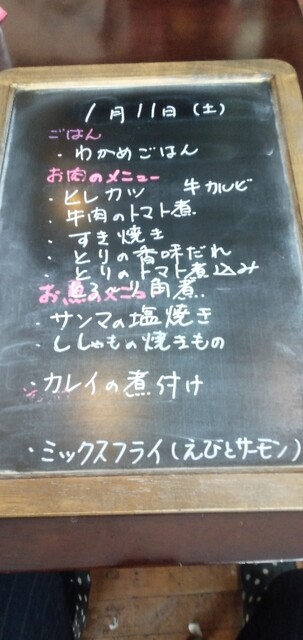 1月11日(土)
ごはん
・わかめごはん
お肉のメニュー
・ヒレカツ 牛カルビ
・牛肉のトマト煮
・すき焼き
・とりの香味だれ
・とりのトマト煮込み
お魚のメニュー
角煮
・サンマの塩焼き
・ししゃもの焼きもの
・カレイの煮付け
・ミックスフライ(えびとサーモン)